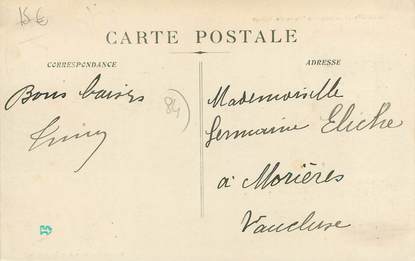 15 €
CARTE POSTALE
CORRESPONDANCE
ADRESSE
Bons baisers
84
Mademoiselle
Germaine Eliche
à Morières
Vaucluse